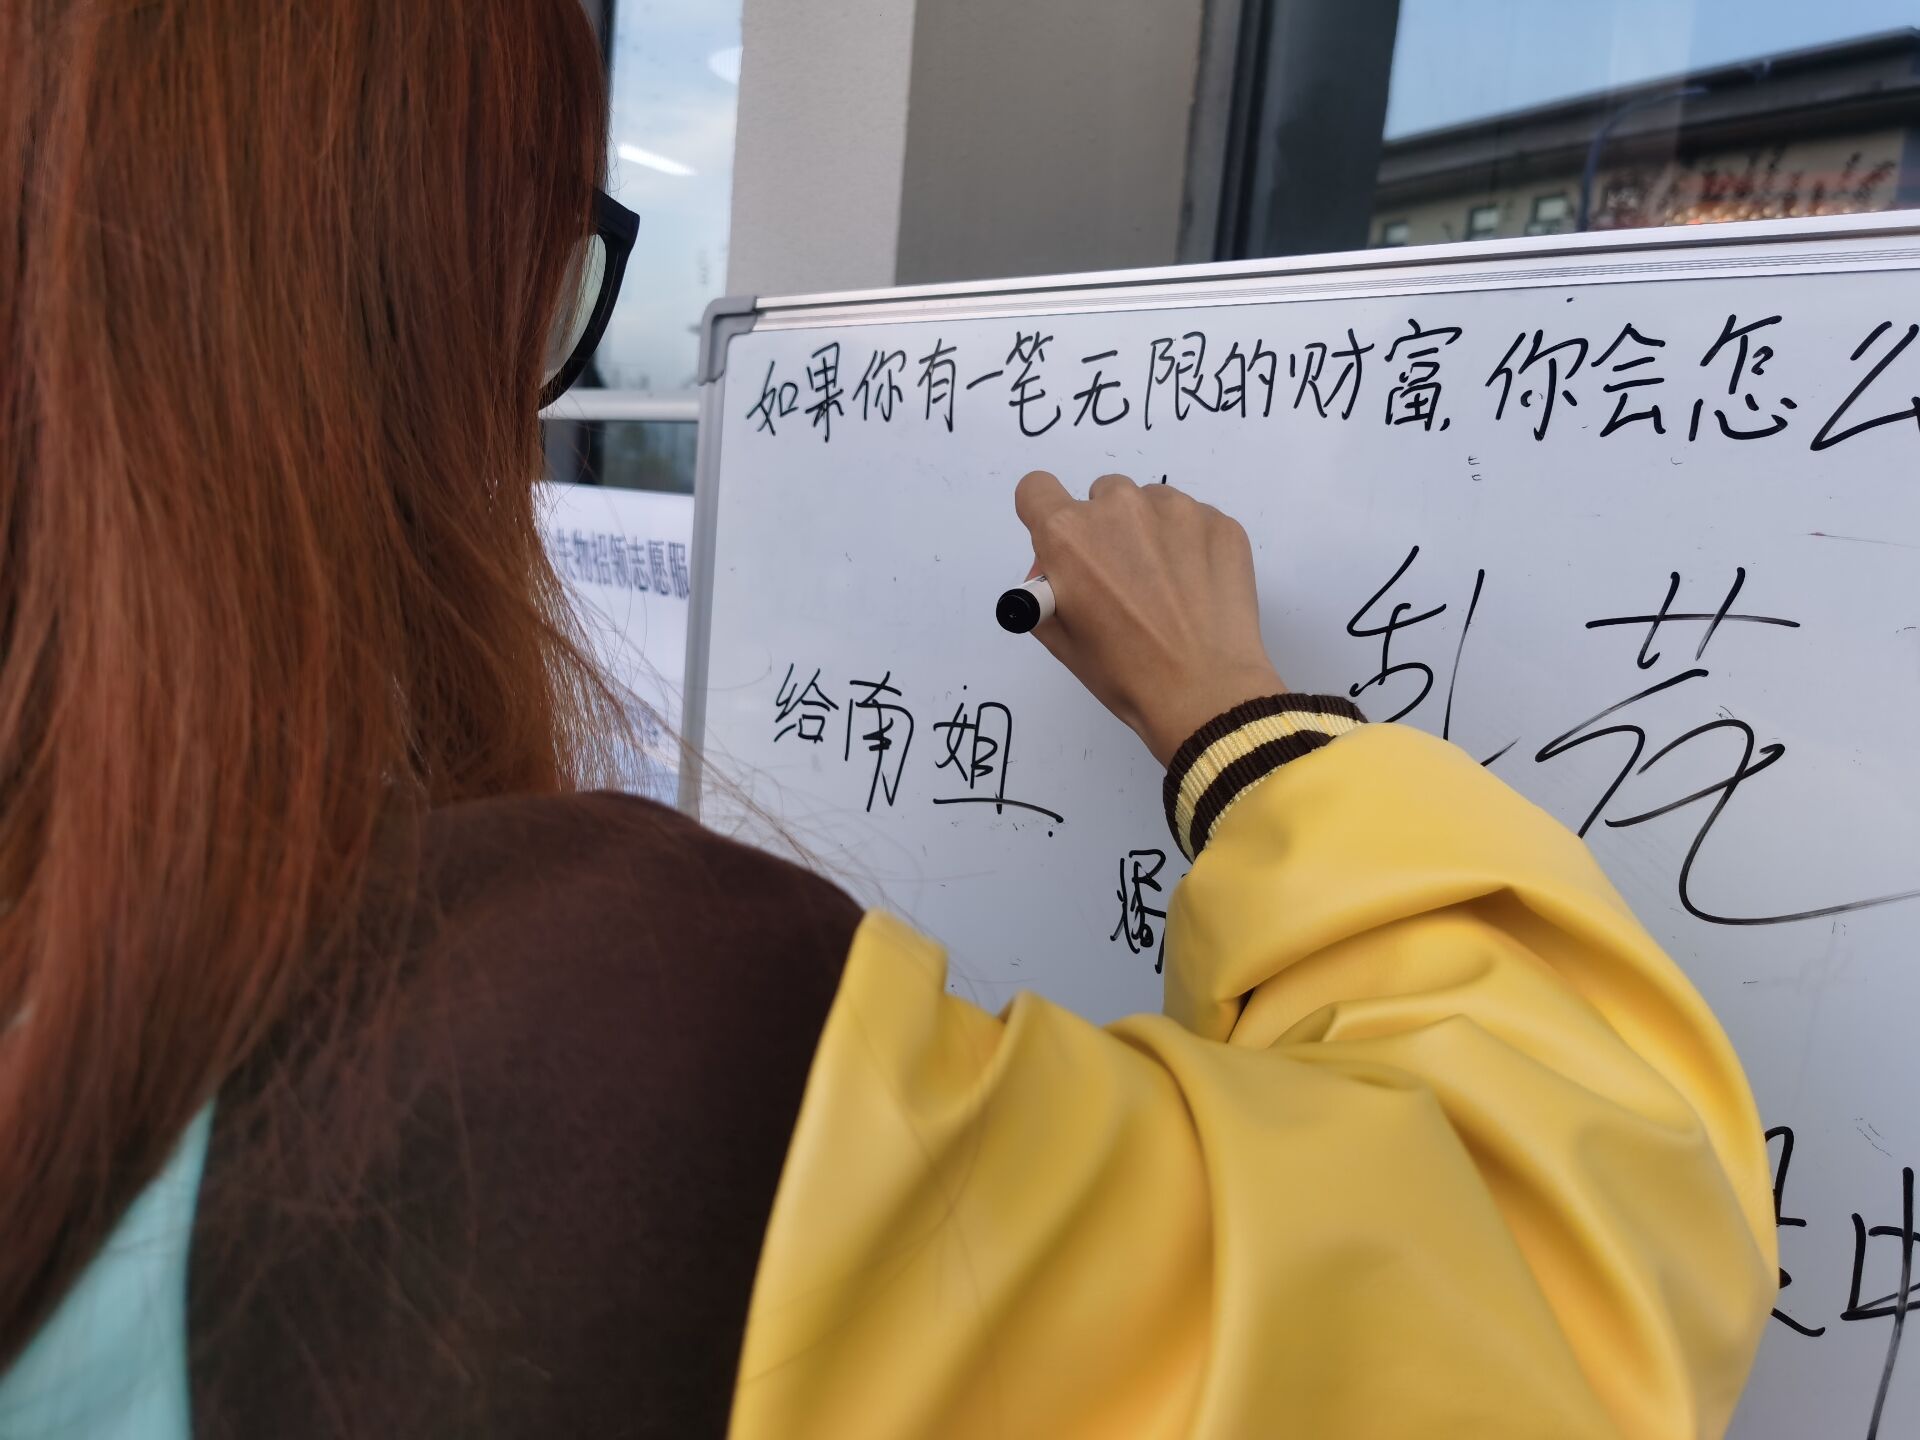 如果你有一笔无限的财富，你会怎么
乱花
给南姐
失物招领志愿服